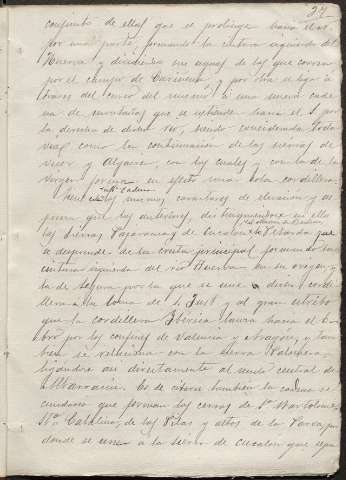 27
conjunto de ellas que se prolonga hacia el
por una parte, formando la cuenca izquierda del
Huerva y dividiendo sus aguas de las que corren
por el campo de Cariñena y por otra se liga á
traves del curso del mismo á una nueva cade
na de montañas que se extiende hacia el S. por
la derecha de dicho rio, siendo considerada toda
como la continuacion de las sierras de
Vicor y Algairen, con las cuales y con la de la
Virgen forman en efecto una sola cordillera.
Tiene esta cadena los mismos caracteres de elevacion y
que las anteriores, distinguiendose en ella
las sierras Pajaranas, de Cucalon y la de Oriche
se desprende de la cresta principal formando la
cuenca izquierda del rio Huerva en su origen y
la de Segura por la que se une á dicha cordi
llera la Loma de S. Just y al gran estribo
que la cordillera Iberica lanza hacia el E
bro por los confines de Valencia y Aragon, y tam
bien se relaciona con la sierra Palomera,
ligandose asi directamente al nudo central de
Albarracin. Es de citarse tambien la cadena se
cundaria que forman los cerros de Sn. Bartolomé,
Sta. Catalina, de las Pilas y altos de la
donde se une á la sierra de Cucalon que